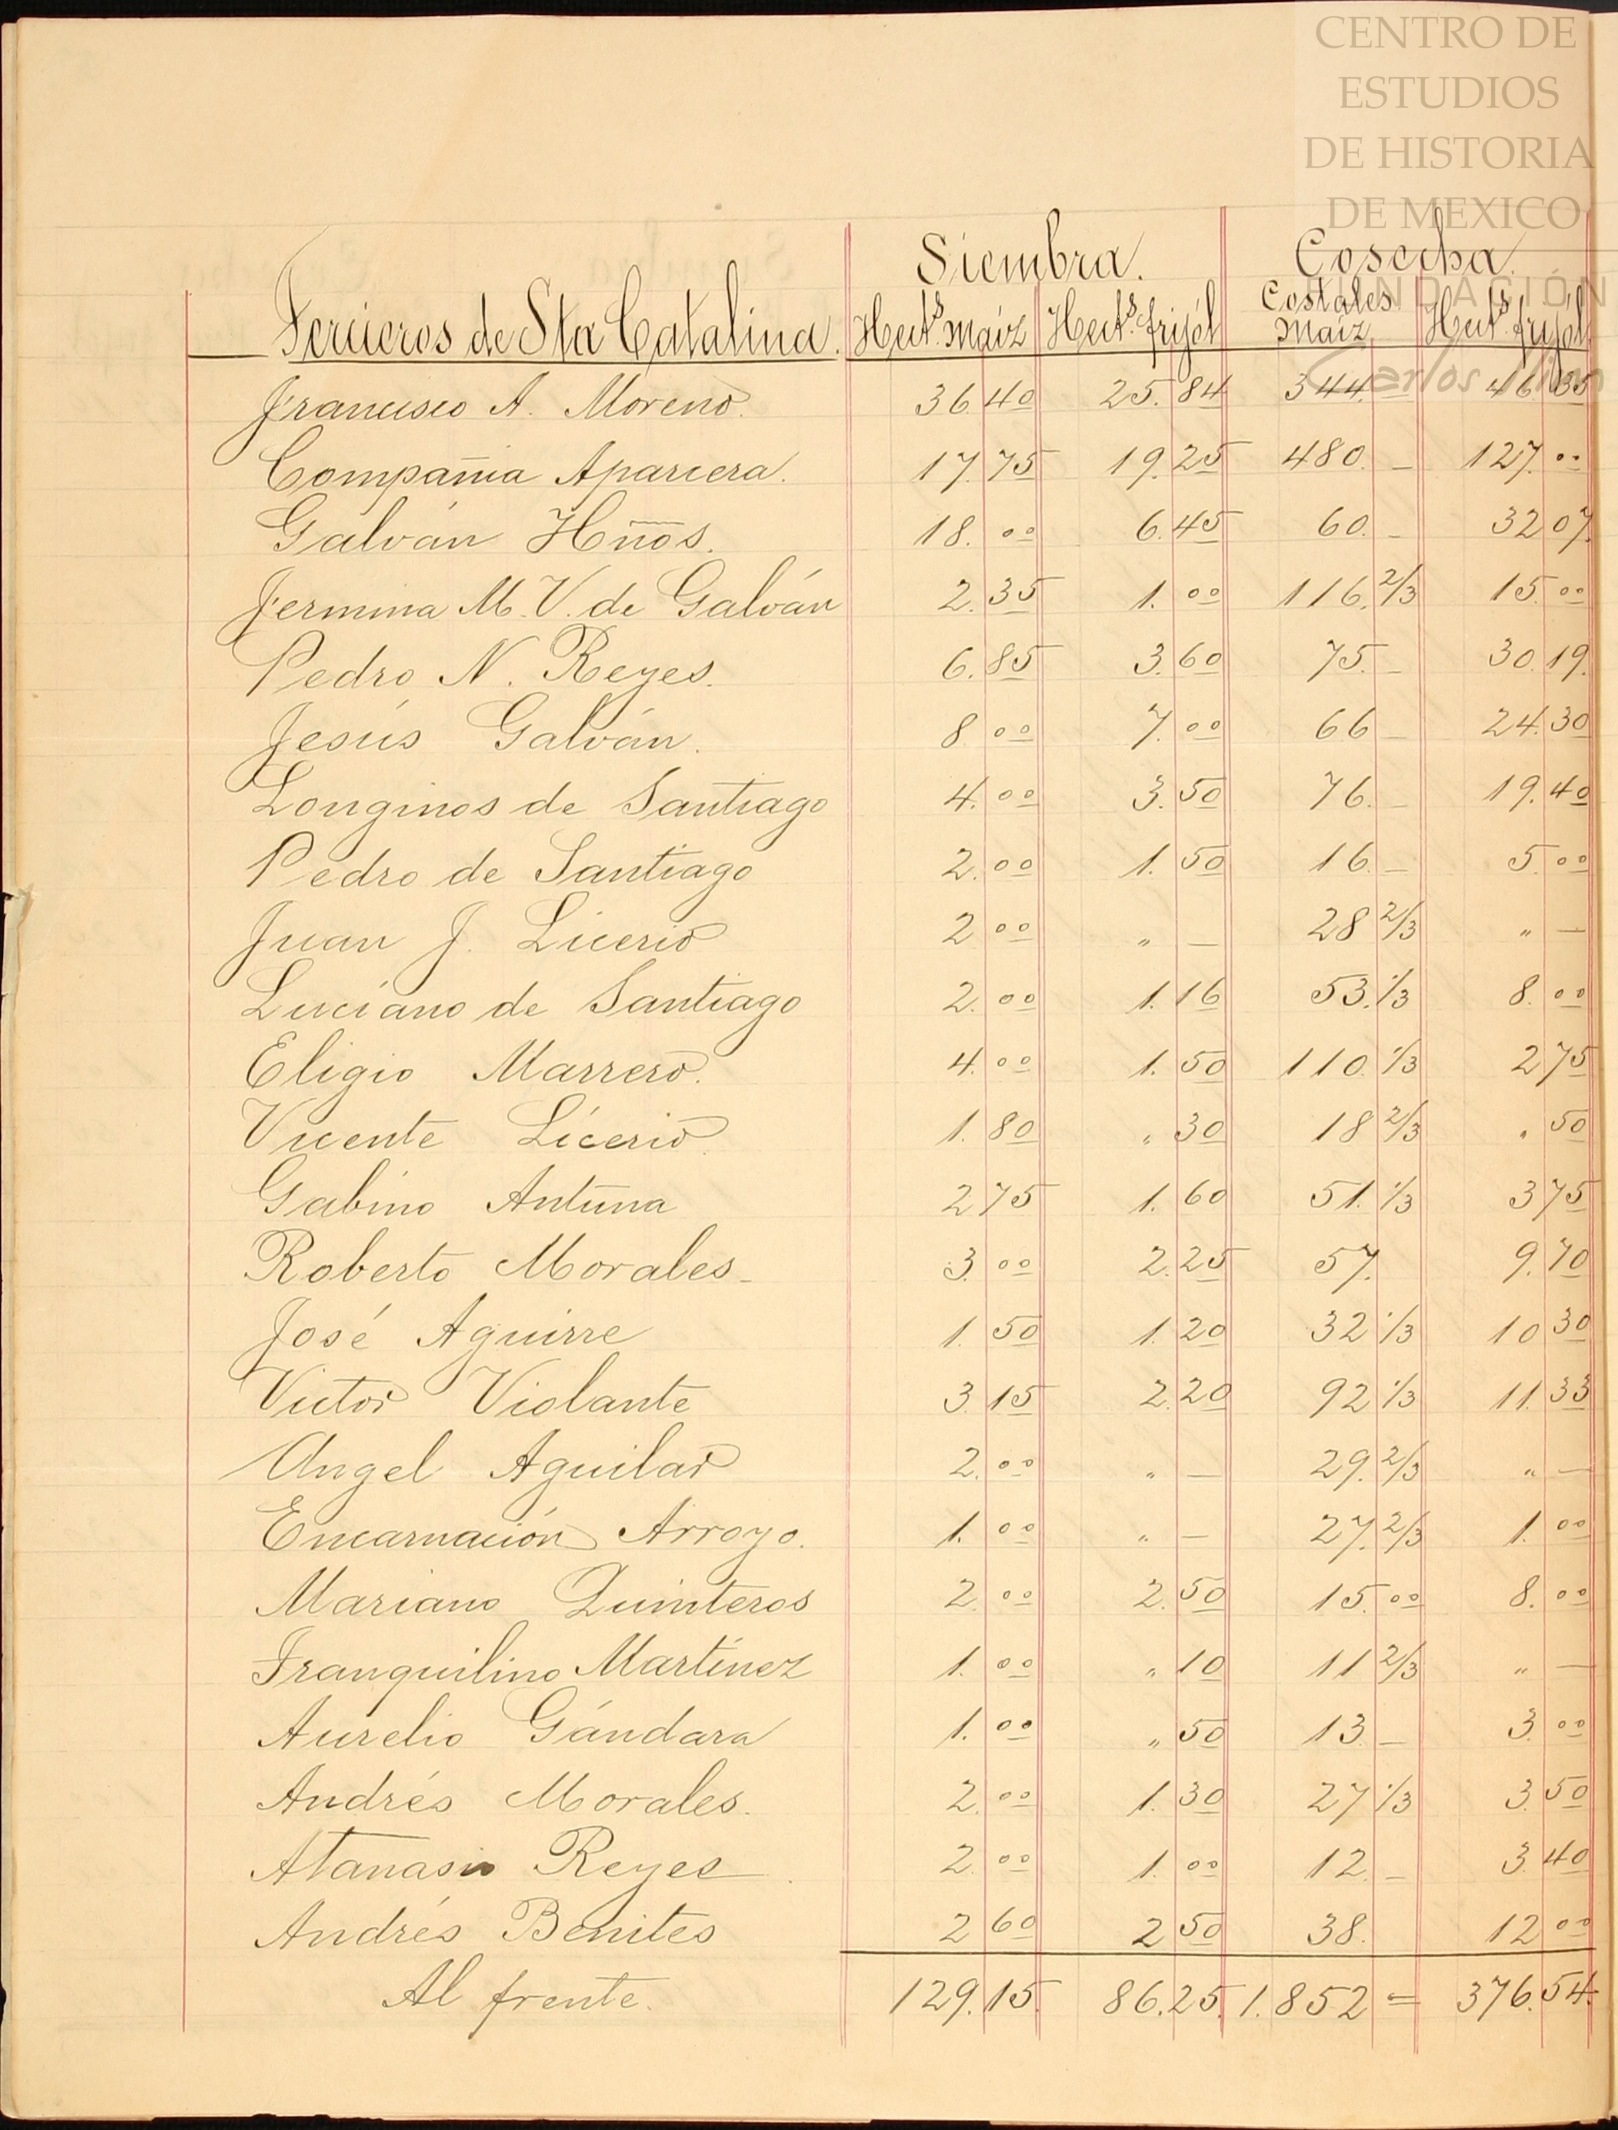 CENTRO DE
ESTUDIOS
DE HISTORIA
DE MEXICO
FUNDACIÓN
Carlos Slim
Siembra. Cosecha.
Tercieros de Sta Catalina. Hects. Maíz Hects. frijól Costales Maíz Hects. frijól
Francisco A. Moreno. 36.40 25.84 344. – 46.35
Compañia Aparcera. 17.75 19.25 480. – 127.00
Galván Hnos. 18.00 6.45 60. – 32 07.
Fermina M. V. de Galván 2.35 1.00 116. 2/3 15.00
Pedro N. Reyes. 6.85 3.60 75. – 30.19.
Jesús Galván. 8 00 7.00 66 – 24.30
Longinos de Santiago 4.00 3.50 76. – 19.40
Pedro de Santiago 2.00 1.50 16 – 5.00
Juan J. Licerio 2 00 „ — 28 2/3 „ —
Luciano de Santiago 2.00 1.16 53. 1/3 8.00
Eligio Marrero. 4.00 1.50 110. 1/3 2 75
Vicente Licerio. 1.80 „ 30 18 2/3 „ 50
Gabino Antuna 2 75 1.60 51. 1/3 3 75
Roberto Morales – 3.00 2.25 57. 9.70
José Aguirre 1.50 1.20 32 1/3 10 30
Victor Violante 3.15 2.20 92 1/3 11.33
Angel Aguilar 2.00 „ — 29. 2/3 „ —
Encarnación Arroyo. 1.00 „ — 27. 2/3 1.00
Mariano Quinteros 2.00 2.50 15.00 8.00
Tranquilino Martínez 1.00 „ 10 11 2/3 „ —
Aurelio Gándara 1.00 „ 50 13 – 3.00
Andrés Morales. 2.00 1.30 27 1/3 3.50
Atanasio Reyes 2.00 1.00 12. – 3.40
Andrés Benites 2 60 2 50 38. 12 00
Al frente. 129.15. 86.25. 1.852 = 376.54.